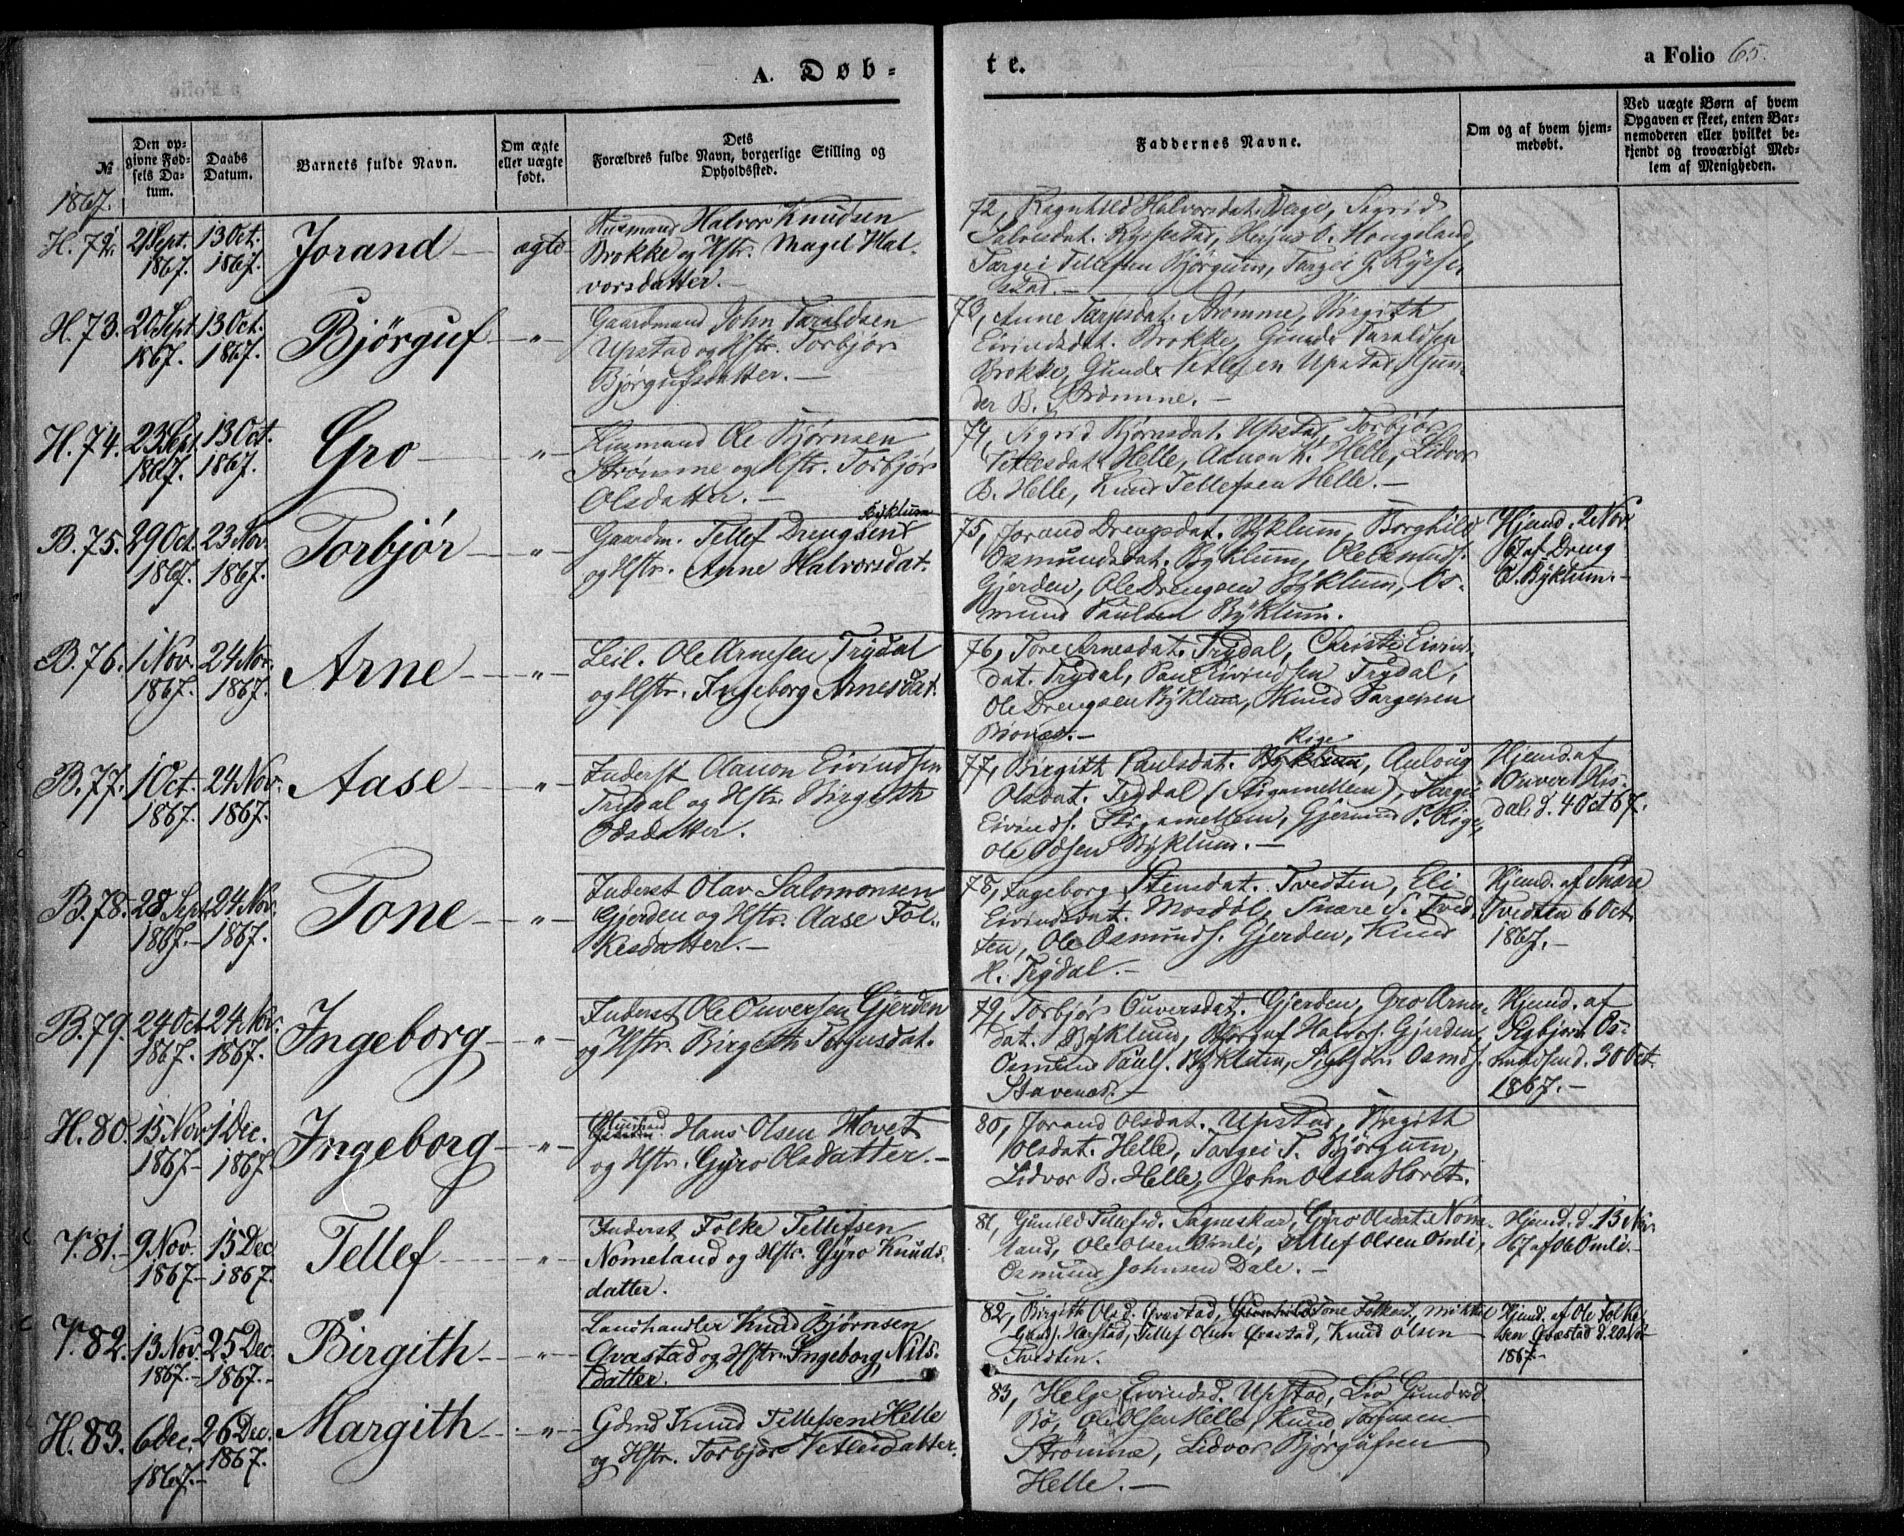 A. Døb-
te.
a Folio 65.
№
Den op-
givne Fød-
sels Da-
tum.
Daabs
Datum.
Barnets fulde Navn.
Om ægte
eller uægte
født.
Dets
Forældres fulde Navn, borgerlige Stilling og
Opholdssted.
Faddernes Navne.
Om og af hvem hjem-
medøbt.
Ved uægte Børn af hvem
Opgaven er skeet, enten Bar-
nemoderen eller hvilket be-
kjendt og troværdigt Med-
lem af Menigheden.
1867.
H. 72.
21 Sept.
1867.
13 Oct.
1867.
Jorand
ægte
Husmand Halvor Knudsen
Brokke og Hstr. Magil Hal-
vorsdatter.
72, Ragnhild Halvorsdat. Berge, Sigrid
Salvesdat. Rysstad, Herjus O. Hougeland,
Targei Tellefsen Bjørgum, Targei J. Rysse-
stad.
H. 73.
20 Sept.
1867.
13 Oct.
1867.
Bjørguf
"
Gaardmand John Taraldsen
Upstad og Hstr. Torbjør
Bjørgufsdatter.
73, Anne Tarjesdat. Strømme, Birgith
Eivindsdat. Brokke, Gunder Taraldsen
Brokke, Gunder Vetlesen Upstad, Gun-
der B. Strømme.
H. 74.
23 Sept.
1867.
13 Oct.
1867.
Gro
"
Husmand Ole Bjørnsen
Strømme og Hstr. Torbjør
Olsdatter.
74, Sigrid Bjørnsdat. Upstad, Torbjør
Vetlesdat. Helle, Aanon K. Helle, Lidvor
B. Helle, Knud Tellefsen Helle.
B. 75.
29 Oct.
1867.
23 Nov.
1867.
Torbjør
"
Gaardm. Tellef Drengsen Byklum
og Hstr. Anne Halvorsdat.
75, Jorand Drengsdat. Byklum, Borghild
Osmundsdat. Byklum, Ole Osmunds.
Gjerden, Ole Drengsen Byklum, Os-
mund Paulsen Byklum.
Hjemd. 2 Nov.
67 af Dreng
O. Byklum.
B. 76.
1 Nov.
1867.
24 Nov.
1867.
Arne
"
Leil. Ole Arnesen Trydal
og Hstr. Ingeborg Arnesdat.
76, Tore Arnesdat. Trydal, Christi Eivin-
dat. Trydal, Paul Eivindsen Trydal,
Ole Drengsen Byklum, Knud Targeisen
B. 77.
1 Oct.
1867.
24 Nov.
1867.
Aase
"
Inderst Aanon Eivindsen
Trydal og Hstr. Birgith
Odsdatter.
77, Birgith Paulsdat. Byklum Rige, Aaloug
Olsdat. Trydal, Targei
Eivinds. Gjermund P. Rige,
Ole Odsen Byklum.
Hjemd. af
Ouver His-
dal d. 4 Oct 67.
B. 78.
28 Sept.
1867.
24 Nov.
1867.
Tone
"
Inderst Olav Salomonsen
Gjerden og Hstr. Aase Fol-
kesdatter.
78, Ingeborg Stensdat. Tvedten, Eli
Eivindsdat. Mosdøl, Snare S. Tved-
ten, Ole Osmunds. Gjerden, Knud
H. Trydal.
Hjemd. af Snare
Tvedten 6 Oct.
1867.
B. 79.
24 Oct.
1867.
24 Nov.
1867.
Ingeborg
"
Inderst Ole Ouversen Gjerden
og Hstr. Birgith Torjusdat.
79, Torbjør Ouversdat. Gjerden, Gro Arne-
dat. Byklum, Bjørguf Halvors. Gjerden,
Osmund Pauls. Byklum, Sigbjørn Osmds.
Stavenes.
Hjemd. af
Sigbjørn Os-
mundsen d. 30 Oct.
1867.
H. 80.
15 Nov.
1867.
1 Dec.
1867.
Ingeborg
"
Husmand Hans Olsen Hovet
og Hstr. Gyro Olsdatter.
80, Jorand Olsdat. Upstad, Birgith
Olsdat. Helle, Targei T. Bjørgum,
Lidvor B. Helle, John Olsen Hovet.
V. 81.
9 Nov.
1867.
15 Dec.
1867.
Tellef
"
Inderst Folke Tellefsen
Nomeland og Hstr. Gyro Knuds-
datter.
81, Gunild Tellefsd. Sagneskar, Gyro Olsdat. Nome-
land, Ole Olsen Omli, Tellef Olsen Omli,
Osmund Johnsen Dale.
Hjemd. d. 13 Nov.
67 af Ole Omli.
V. 82.
13 Nov.
1867.
25 Dec.
1867.
Birgith
"
Landhandler Knud Bjørnsen
Qvæstad og Hstr. Ingeborg Nils-
datter.
82, Birgith Olsd. Qvæstad, Tone Folkesd, Mikkel
Gunds. Harstad, Tellef Olsen Qvæstad, Knud Olsen
Tvedten.
Hjemd. af Ole Folke-
sen Qvæstad d. 20 Nov
1867.
H. 83.
6 Dec.
1867.
26 Dec.
1867.
Margith
"
Gdmd Knud Tellefsen Helle
og Hstr. Torbjør Vetlesdatter.
83, Helge Eivindsd. Upstad, Liv Gundersd
Bø, Ole Olsen Helle, Knud Torgusen
Strømme, Lidvor Bjørgufsen
Helle.